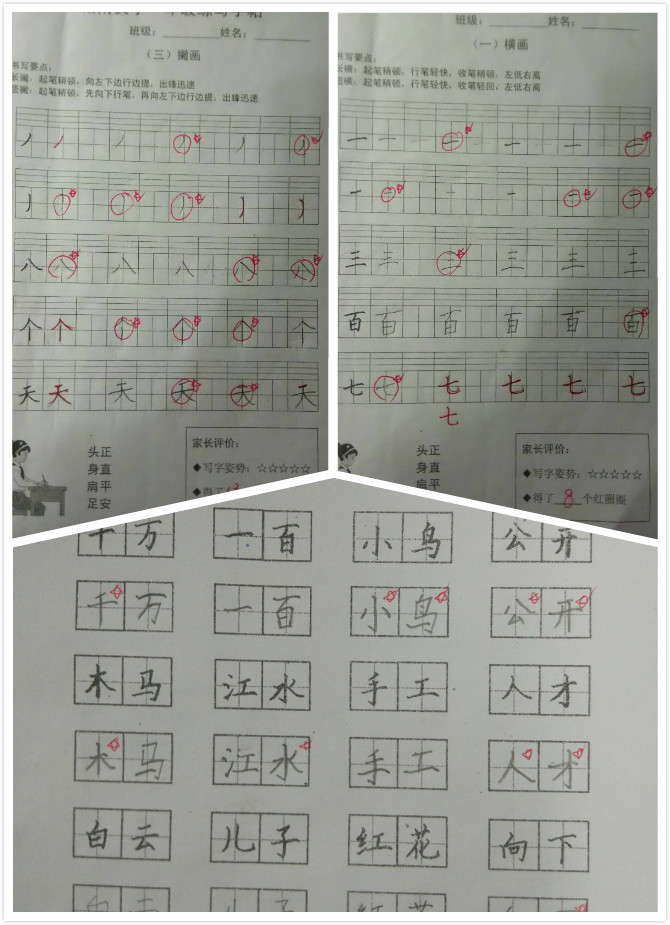 班级：________姓名：________
（三）撇画
书写要点：
长撇：起笔稍顿，向左下边行边提，出锋迅速
竖撇：起笔稍顿，先向下行笔，再向左下边行边提，出锋迅速
丿 丿 丿 丿 丿 丿
丿 丿 丿 丿 丿 丿
八 八 八 八 八 八
个 个 个 个 个 个
天 天 天 天 天 天
头正
身直
肩平
足安
家长评价：
◆写字姿势：☆☆☆☆☆
◆得了
班级：________姓名：________
（一）横画
书写要点：
长横：起笔稍顿，行笔轻快，收笔稍顿，左低右高
短横：起笔稍顿，行笔轻快，收笔轻回，左低右高
一 二 一 一 二
一 二 一 二 二
三 三 三 三 三 三
百 百 百 百 百 百
七 七 七 七 七 七
七
头正
身直
肩平
足安
家长评价：
◆写字姿势：☆☆☆☆☆
◆得了 8 个红圈圈
千万 一百 小鸟 公开
千万 一百 小鸟 公开
木马 江水 手工 人才
木马 江水 手工 人才
白云 儿子 红花 向下